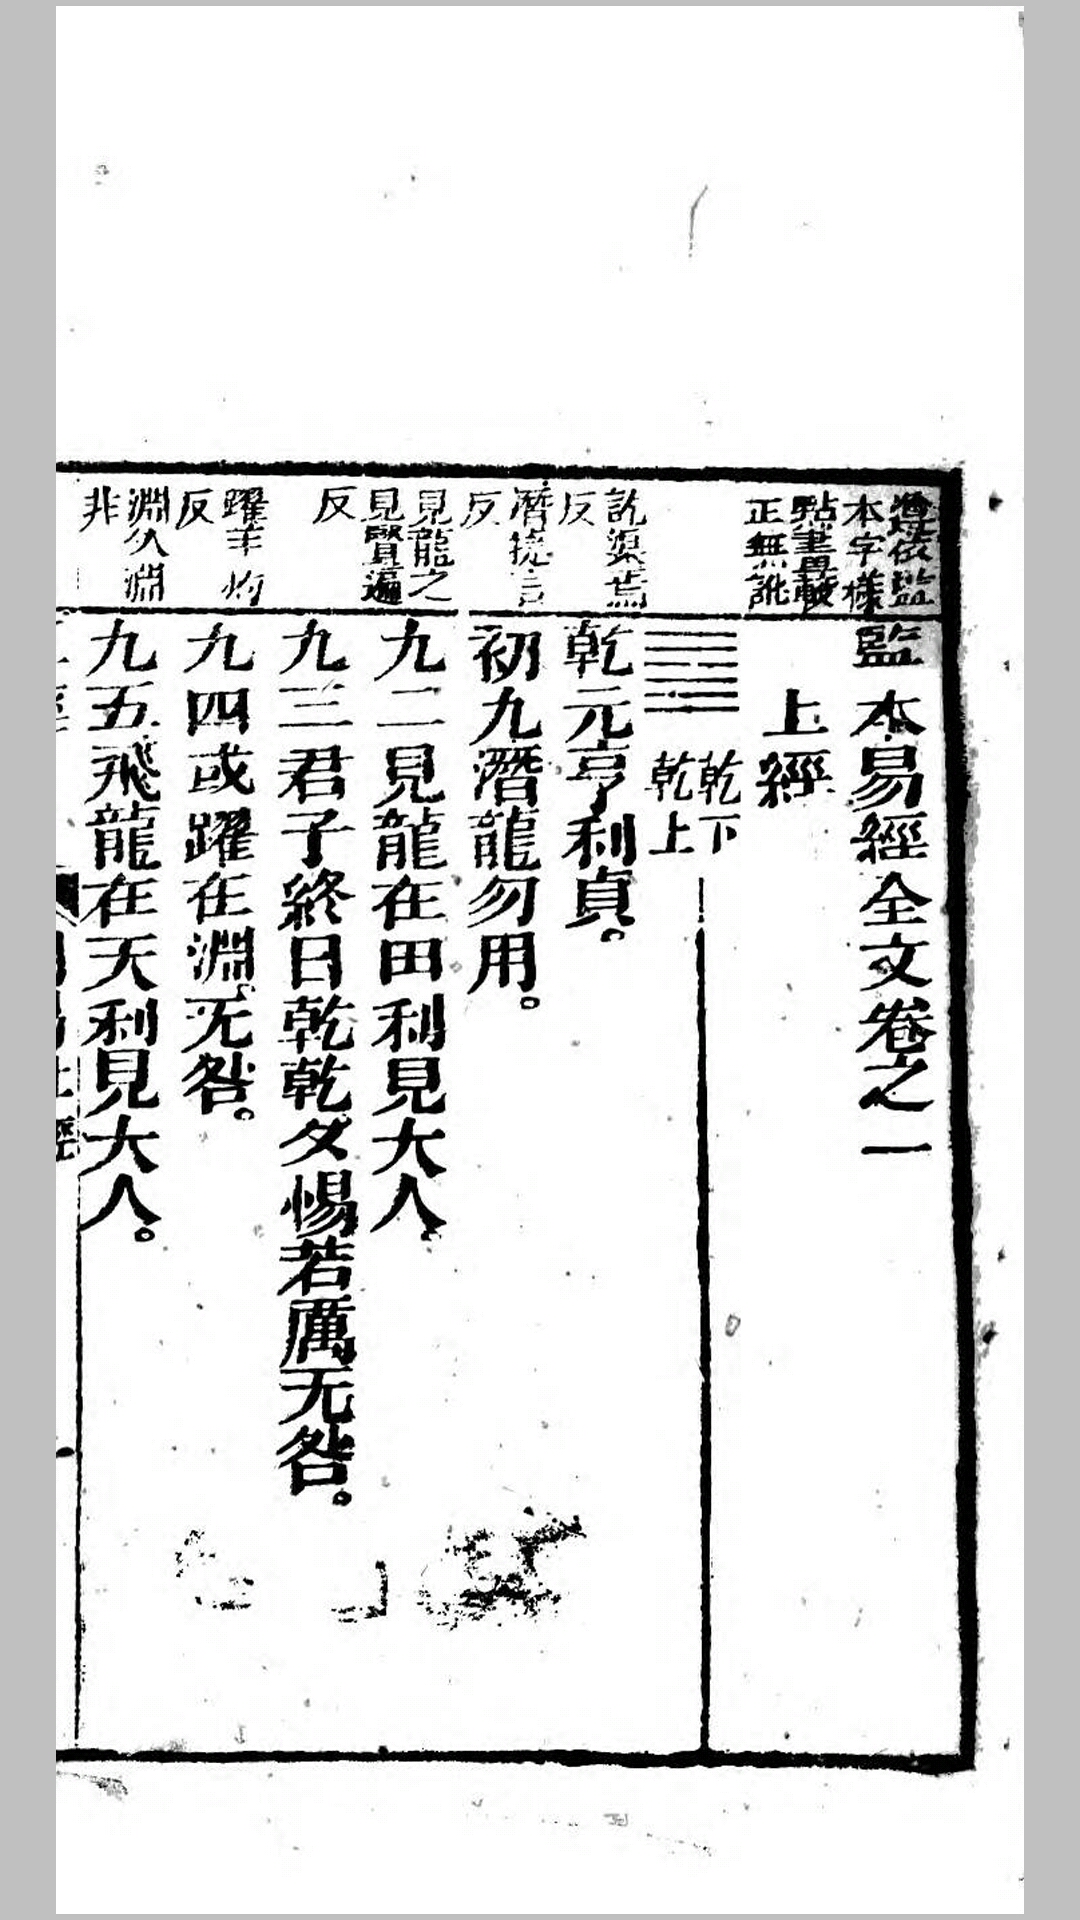 遵依監
本字樣
點畫最較
正無訛
訛渠焉
反
潛捷言
反
見龍之
見賢遍
反
躍羊灼
反
淵从淵
非
監本易經全文卷之一
上經
乾下
乾上
乾元亨利貞。
初九潛龍勿用。
九二見龍在田利見大人。
九三君子終日乾乾夕惕若厲无咎。
九四或躍在淵无咎。
九五飛龍在天利見大人。